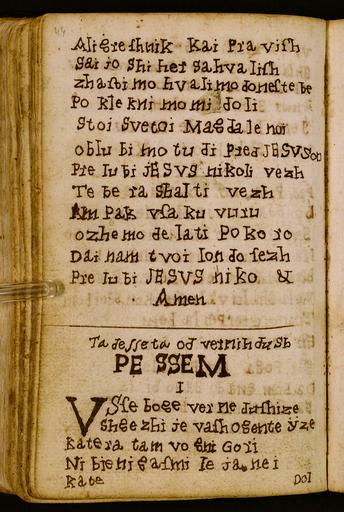 44
Ali greshnik Kai pra vish
Sai jo Shi her sahvalish
zhasti mo hvalimo doneste be
Po kle kni mo mi doli
Stoi Svetoi Magdale noi
oblu bi mo tu di Pred JESVSom
Pre lubi JESVS nikoli vezh
Te be ra shalti vezh
Am pak vsa ku vuru
ozhe mo de lati Po ko ro
Dai nam tvoi lon do sezh
Pre lu bi JESVS niko &
Amen
Ta desseta od vernih dush
PE SSEM
I
VSse boge ver ne dushize
Shge zhi je vashogente yze
katera tam vo gni Gori
Ni bjenigasmi Je ja, ne i
kate
Dol